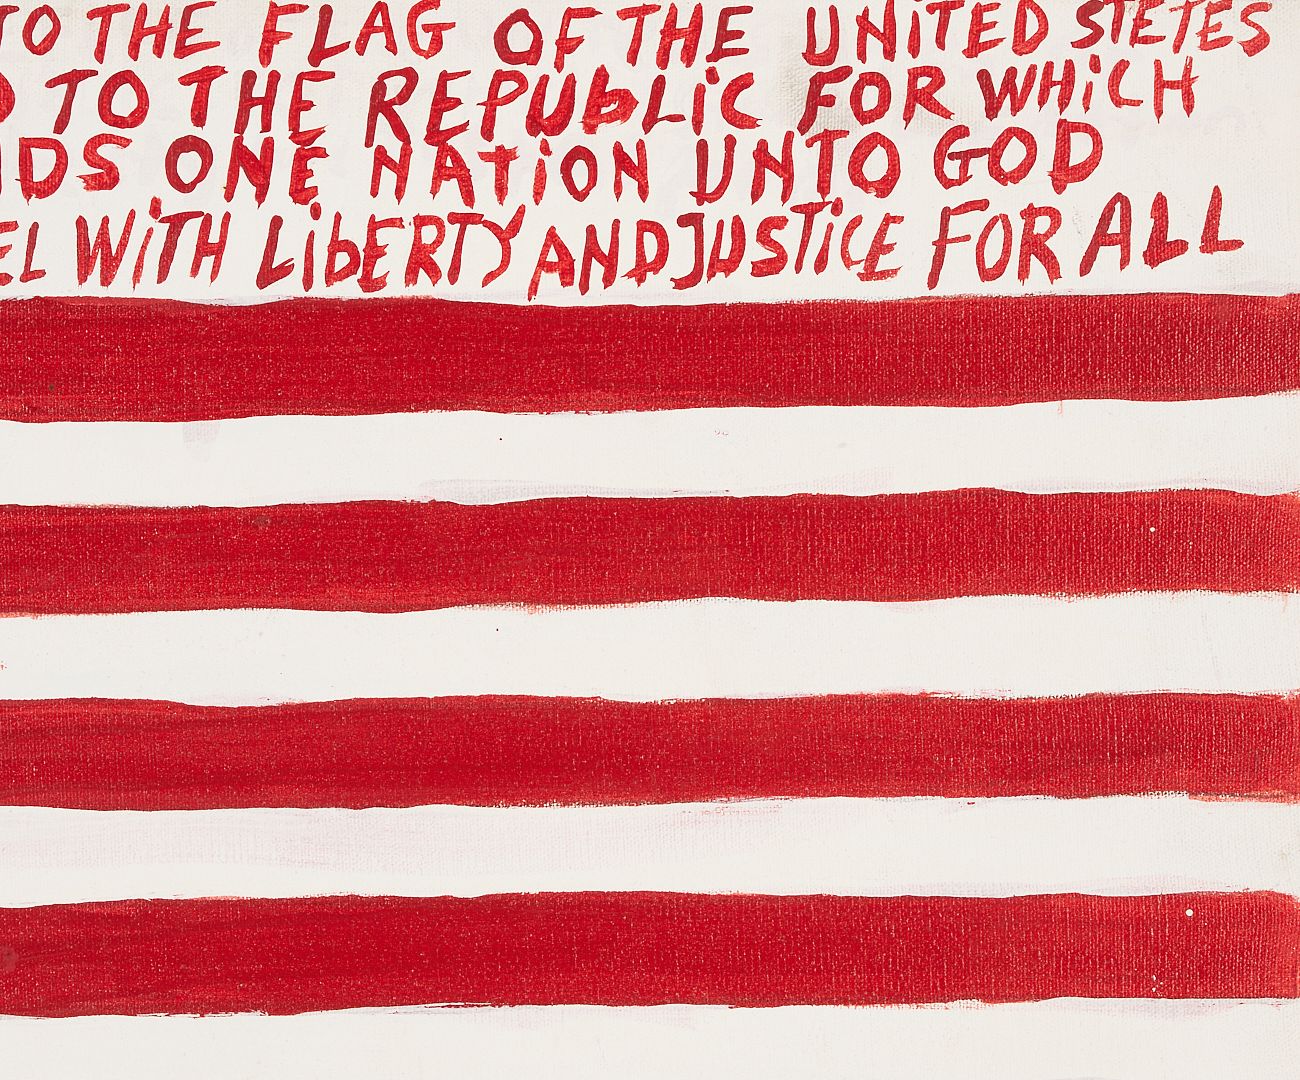 TO THE FLAG OF THE UNiTED STETES
D TO THE REPUbLiC FOR WHiCH
NDS ONE NATiON UNTO GOD
EL WiTH LibERTY AND JUSTiCE FOR ALL